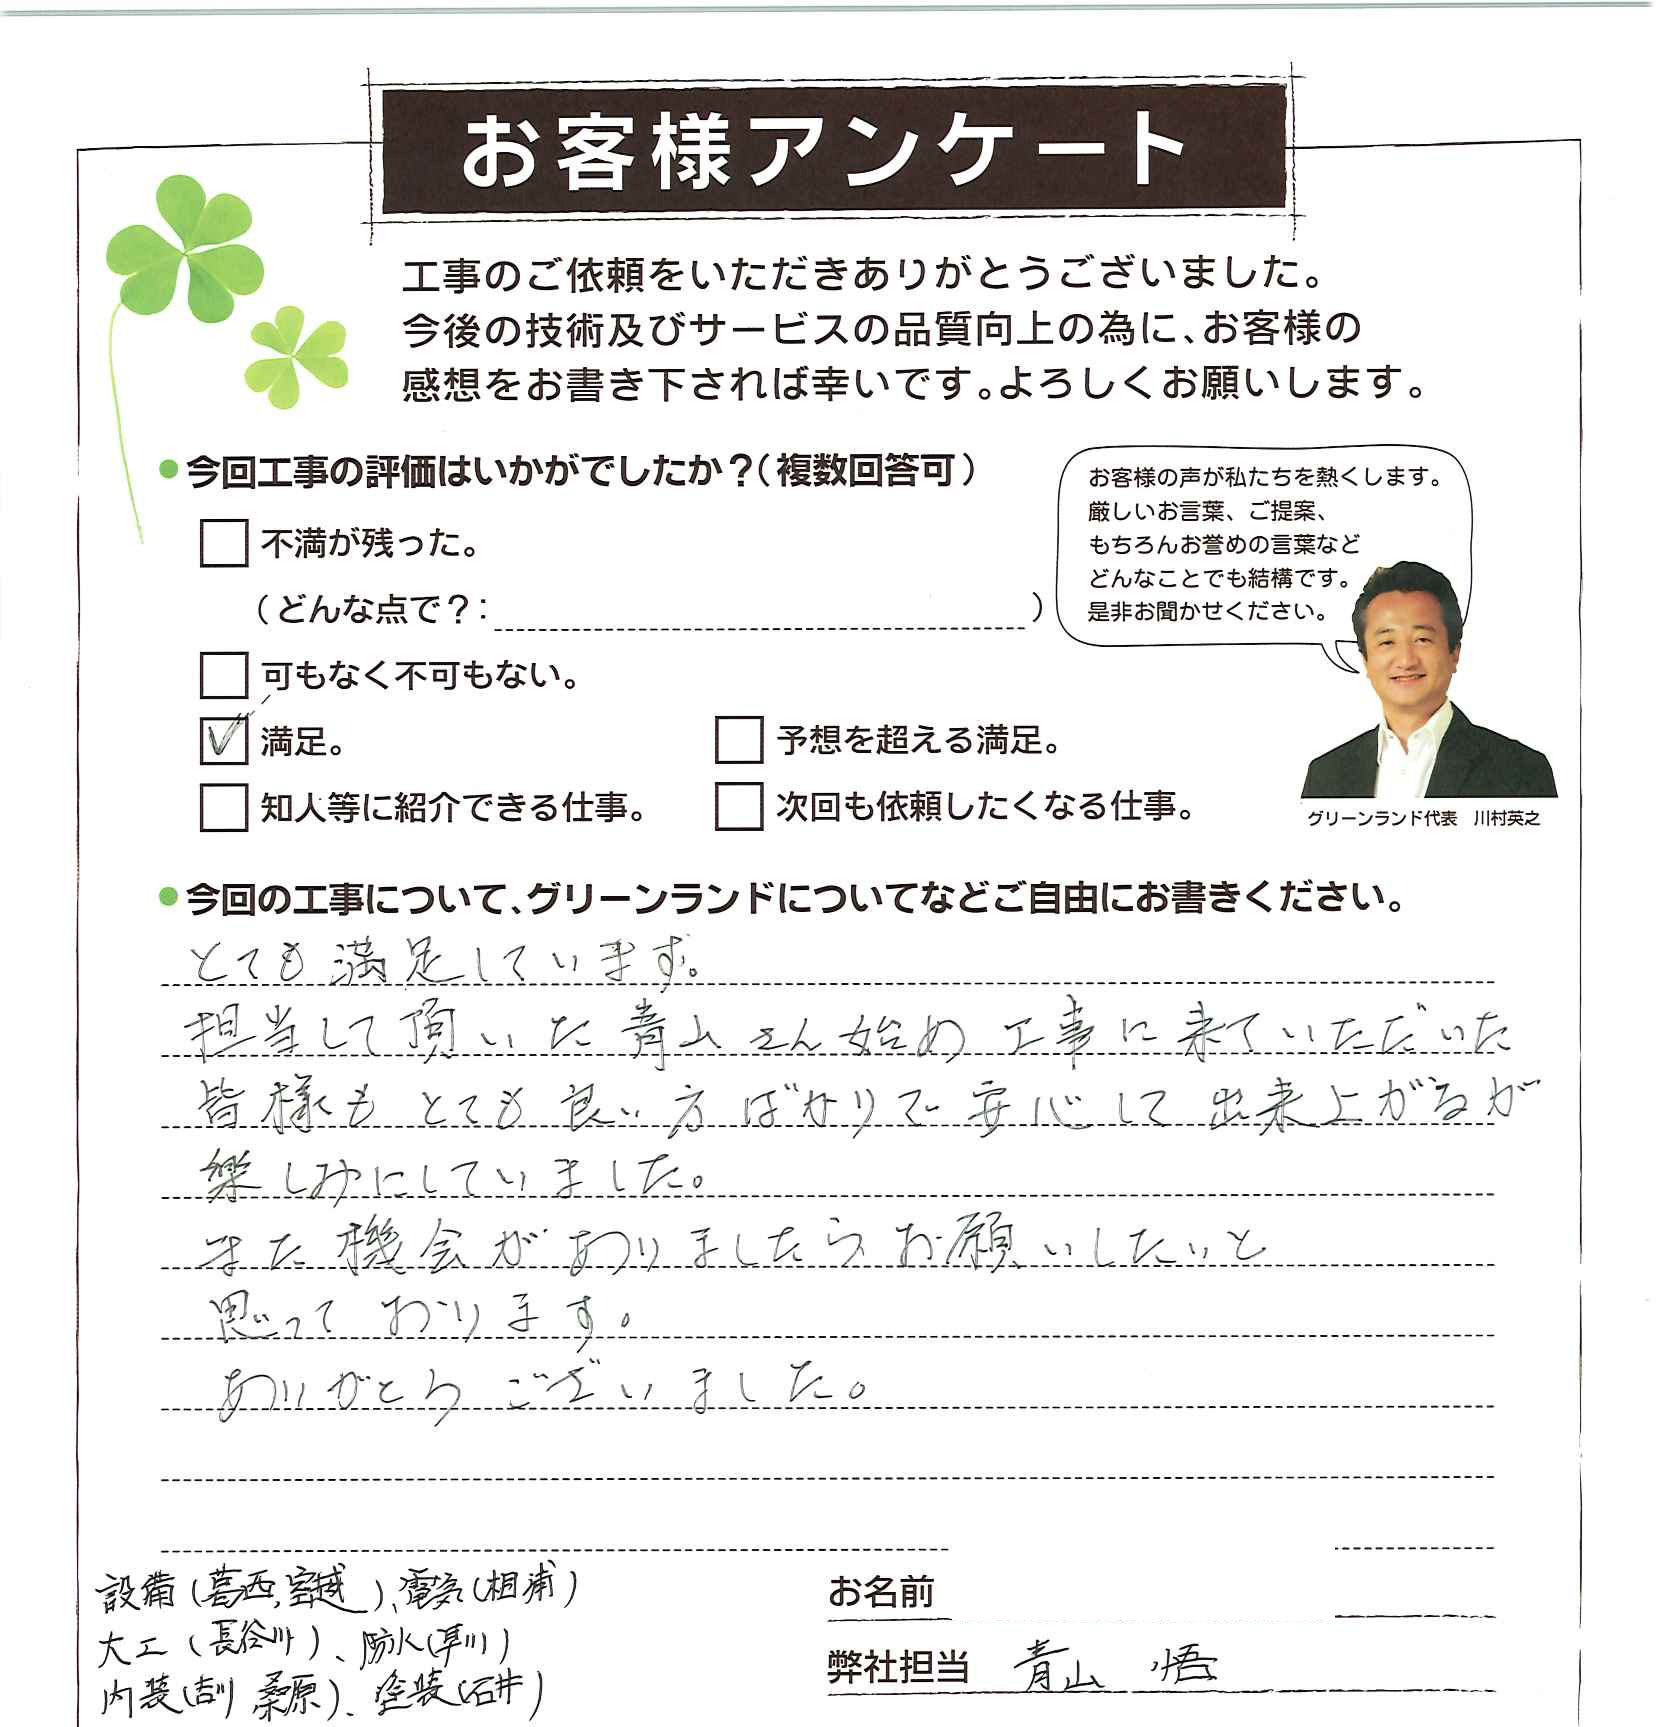 お客様アンケート
工事のご依頼をいただきありがとうございました。
今後の技術及びサービスの品質向上の為に、お客様の
感想をお書き下されば幸いです。よろしくお願いします。
●今回工事の評価はいかがでしたか？（複数回答可）
不満が残った。
（どんな点で？：　）
可もなく不可もない。
満足。
予想を超える満足。
知人等に紹介できる仕事。
次回も依頼したくなる仕事。
お客様の声が私たちを熱くします。
厳しいお言葉、ご提案、
もちろんお誉めの言葉など
どんなことでも結構です。
是非お聞かせください。
グリーンランド代表　川村英之
●今回の工事について、グリーンランドについてなどご自由にお書きください。
とても満足しています。
担当して頂いた青山さん始め工事に来ていただいた
皆様もとても良い方ばかりで安心して出来上がるが
楽しみにしていました。
また機会がありましたらお願いしたいと
思っております。
ありがとうございました。
設備（葛西, 室越）、電気（相浦）
大工（長谷川）、防水（早川）
内装（吉川 桑原）、塗装（石井）
お名前
弊社担当　青山　悟